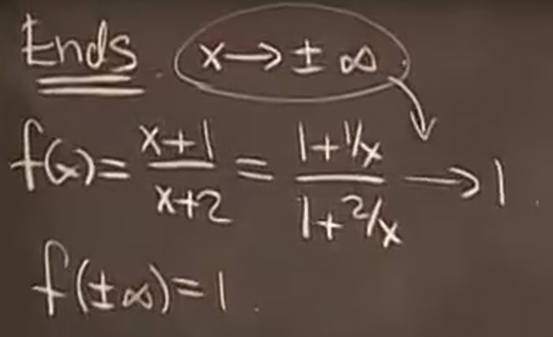 Ends. x→±∞
f(x)= x+1/x+2 = 1+1/x / 1+2/x →1.
f(±∞)=1.